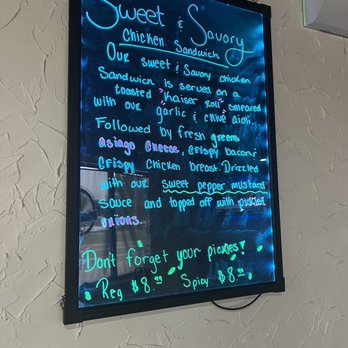 Sweet & Savory
Chicken Sandwich
Our sweet & Savory chicken
Sandwich is serves on a
toasted "Kaiser Roll" smeared
with our garlic & chive aioli.
Followed by fresh greens
asiago cheese, crispy bacon &
crispy chicken breast. Drizzled
with our sweet pepper mustard
sauce and topped off with pickled
onions.
Don't forget your pickles!
Reg $8.99 Spicy $8.99